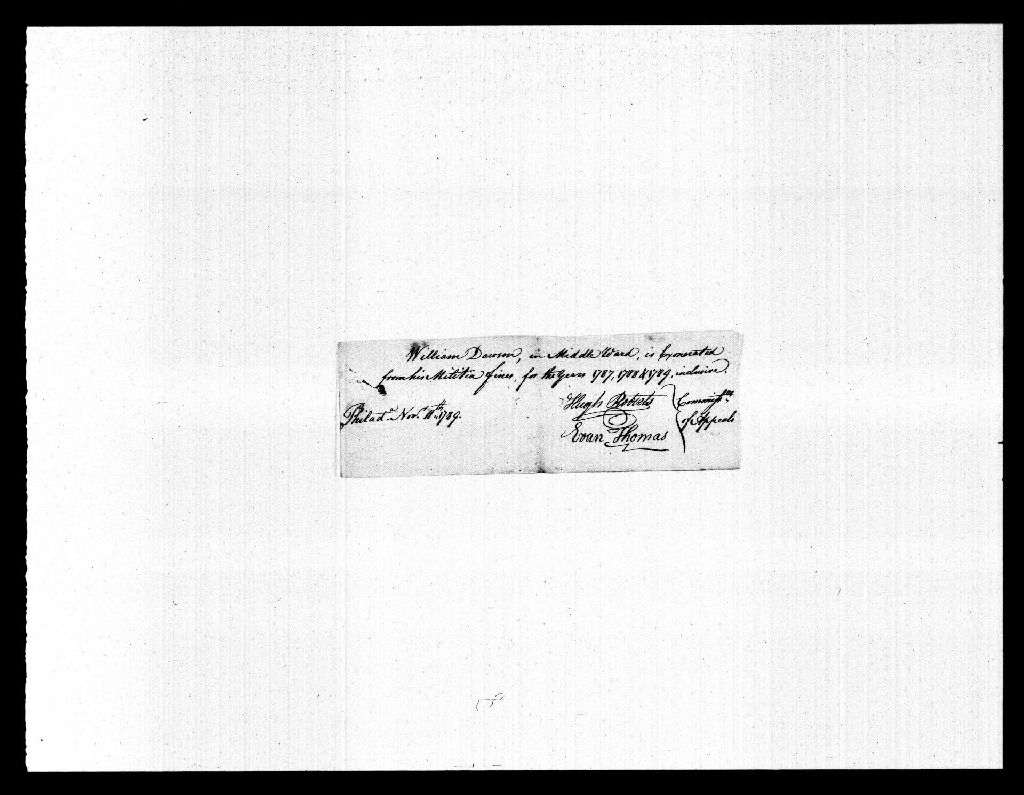 William Dawson, in Middle Ward, is Exonerated
from his Militia fines, for the Years 1787, 1788 & 1789, inclusive.
Philad.ª Nov.r 11th 1789.
Hugh Roberts
Evan Thomas
Commiss.rs
of Appeals